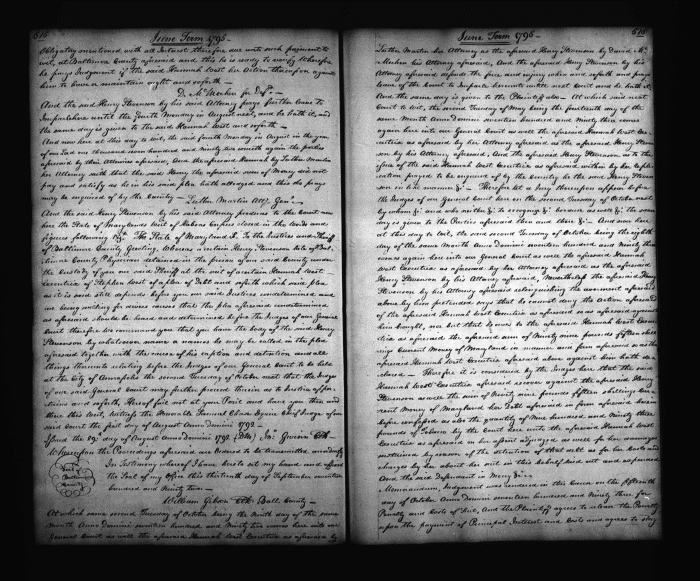 June Term 1795
Obligatory mentioned with all Interest therefore due until such payment to
wit, at Baltimore County aforesaid and this he is ready to verify Wherefore
he prays Judgment if the said Hannah West her Action thereupon against
him to have or maintain ought and soforth
D. McMechen for Deft.
And the said Henry Stevenson by his said Attorney prays further leave to
Imparlance until the fourth Monday in August next, and to hath it, and
the same day is given to the said Hannah West and soforth
And now here at this day to wit, the said fourth Monday in August in the year
of our Lord one thousand seven hundred and ninety two comith again the parties
aforesaid by their Attornies aforesaid, And the aforesaid Hannah by Luther Martin
her Attorney saith that the said Henry the aforesaid sum of Money did not
pay and satisfy as he in his said plea hath alledged and this she prays
may be enquired of by the Country
Luther Martin Atty Genl.
And the said Henry Stevenson by his said Attorney produces to the Court now
here the State of Maryland writ of Habeas Corpus closed in the words and
figures following to wit The State of Maryland to the Justices and Sheriff
of Baltimore County Greeting Whereas a certain Henry Stevenson late of Baltimore
County Physician detained in the prison of our said County under
the Custody of you our said Sheriff at the suit of a certain Hannah West
Executrix of Stephen West of a plea of Debt and soforth which said plea
as it is said still depends before you our said Justices undetermined and
we being willing for divers causes that the plea aforesaid undetermined
as aforesaid should be heard and determined before the Judges of our General
Court therefore we command you that you have the body of the said Henry
Stevenson by whatsoever name or names he may be called in the plea
aforesaid together with the causes of his caption and detention and all
things thereunto relating before the Judges of our General Court to be held
at the City of Annapolis the second Tuesday of October next that the Judges
of our said General Court may further proceed therein as to Justice apper
tains and soforth, Hereof fail not at your Peril and have you then and
there this Writ, Witness the Honorable Samuel Chase Esquire Chief Judge of our
said Court the first day of August Anno Domini 1792
Issued the 29th day of August Anno Domini 1792
Whereupon the Proceedings aforesaid are Ordered to be transmitted accordingly
In Testimony whereof I have hereto set my hand and affixed
the Seal of my Office this thirteenth day of September seventeen
hundred and Ninety two
Seal of
Baltimore
County
William Gibson Clk Balt. County
At which same second Tuesday of October being the Ninth day of the same
Month Anno Domini seventeen hundred and Ninety two comes here into our
General Court as well the aforesaid Hannah West Executrix as aforesaid by
June Term 1795
Luther Martin her Attorney as the aforesaid Henry Stevenson by David Mc
Mechen his Attorney aforesaid, And the aforesaid Henry Stevenson by his
Attorney aforesaid defends the force and injury when and soforth and prays
leave of the Court to Imparle hereunto until next Court and to hath it,
And the same day is given to the Plaintiff also At which said next
Court to wit, the second Tuesday of May being the fourteenth day of the
same Month Anno Domini seventeen hundred and Ninety three comes
again here into our General Court as well the aforesaid Hannah West Exe
cutrix as aforesaid by her Attorney aforesaid as the aforesaid Henry Steven
son by his Attorney aforesaid, And the aforesaid Henry Stevenson as to the
plea of the said Hannah West Executrix as aforesaid within by her repli
cation prayed to be enquired of by the Country he the said Henry Steven
son in like manner &c. Therefore let a Jury thereupon appear before
the Judges of our General Court here on the second Tuesday of October next
by whom &c and who neither &c to recognize &c because as well &c the same
day is given to the Parties aforesaid then and there &c. And now here
at this day to wit, the said second Tuesday of October being the eighth
day of the same Month Anno Domini seventeen hundred and Ninety three
comes again here into our General Court as well the aforesaid Hannah
West Executrix as aforesaid by her Attorney aforesaid as the aforesaid
Henry Stevenson by his Attorney aforesaid, Nevertheless the aforesaid Henry
Stevenson by his Attorney aforesaid relinquishing the averment aforesaid
above by him pretended says that he cannot deny the Action aforesaid
of the aforesaid Hannah West Executrix as aforesaid as aforesaid against
him brought, nor but that he owes to the aforesaid Hannah West Execu
trix as aforesaid the aforesaid sum of Ninety nine pounds fifteen shil
lings Current Money of Maryland in manner and form aforesaid as the
aforesaid Hannah West Executrix aforesaid above against him hath de
clared Therefore it is considered by the Judges here that the said
Hannah West Executrix aforesaid recover against the aforesaid Henry
Stevenson as well the sum of Ninety nine pounds fifteen shillings Cur
rent Money of Maryland her Debt aforesaid in form aforesaid above
before confessed as also the quantity of Nine hundred and Ninety three
pounds of Tobacco by the Court here unto the aforesaid Hannah West
Executrix as aforesaid on her assent adjudged as well for her damages
sustained by reason of the detention of that debt as for her Costs and
charges by her about her suit in this behalf laid out and expended
And the said Defendant in Mercy &c.
Memorandum, Judgment was rendered in this Cause on the fifteenth
day of October Anno Domini seventeen hundred and Ninety three for
Penalty and Costs of Suit, And the Plaintiff agrees to release the Penalty
upon the payment of Principal Interest and Costs and agrees to stay